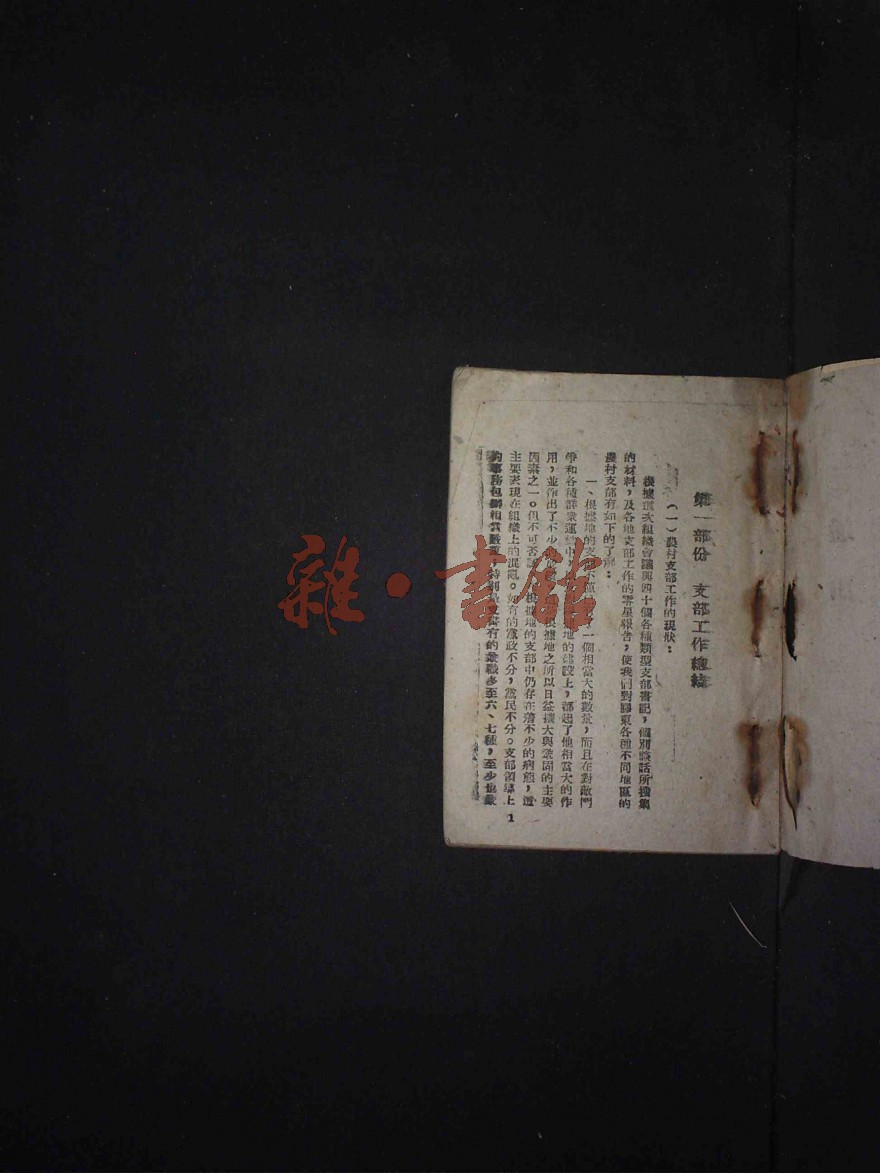 第一部份　支部工作總結
（一）農村支部工作的現狀：
根據這次組織會議與四十個各種類型支部書記，個別談話所搜集
的材料，及各地支部工作的零星報告，使我們對膠東各種不同地區的
農村支部有如下的了解：
一、根據地的支部不僅 一個相當大的數量，而且在對敵鬥
爭和各種群衆運動中 地的建設上，都起了他相當大的作
用，並作出了不少 根據地之所以日益擴大與鞏固的主要
因素之一。但不可否認 根據地的支部中仍存在着不少的病態，這
主要表現在組織上的混亂。如有的黨政不分，黨民不分。支部領導上
的事務包辦相當嚴重，特別是支書有的兼職多至六、七種，至少也兼
1
雜·書館